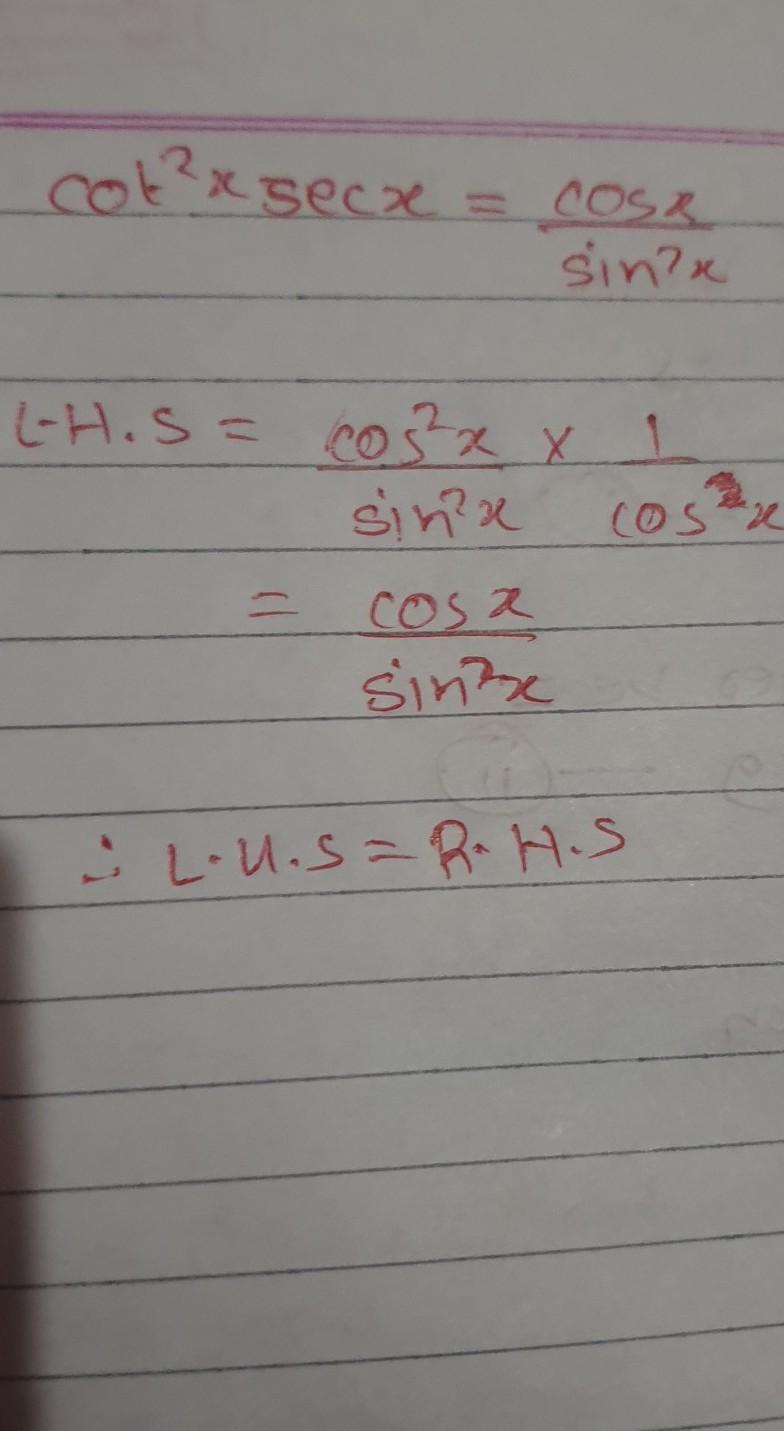 cot²x secx = cosx/sin²x
L-H.S = cos²x/sin²x × 1/cos x
= cosx/sin²x
∴ L.H.S = R.H.S